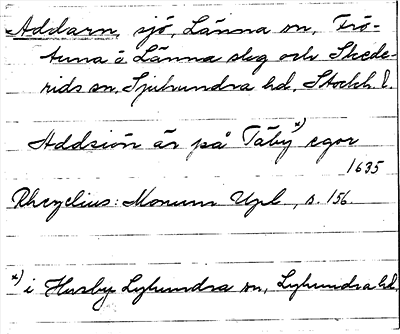 Addarn, sjö, Länna sn, Frö-
tuna o Länna slg och Skede-
rids sn, Sjuhundra hd, Stockh. l.
Addsiön är på Täby x) egor
1635
Rhezelius: Monum Upl., s. 156.
x) i Husby Lyhundra sn, Lyhundra hd.